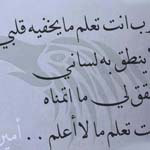 رب انت تعلم ما يخفيه قلبي
ينطق به لساني
قق لي ما اتمناه
ت تعلم ما لا أعلم . .